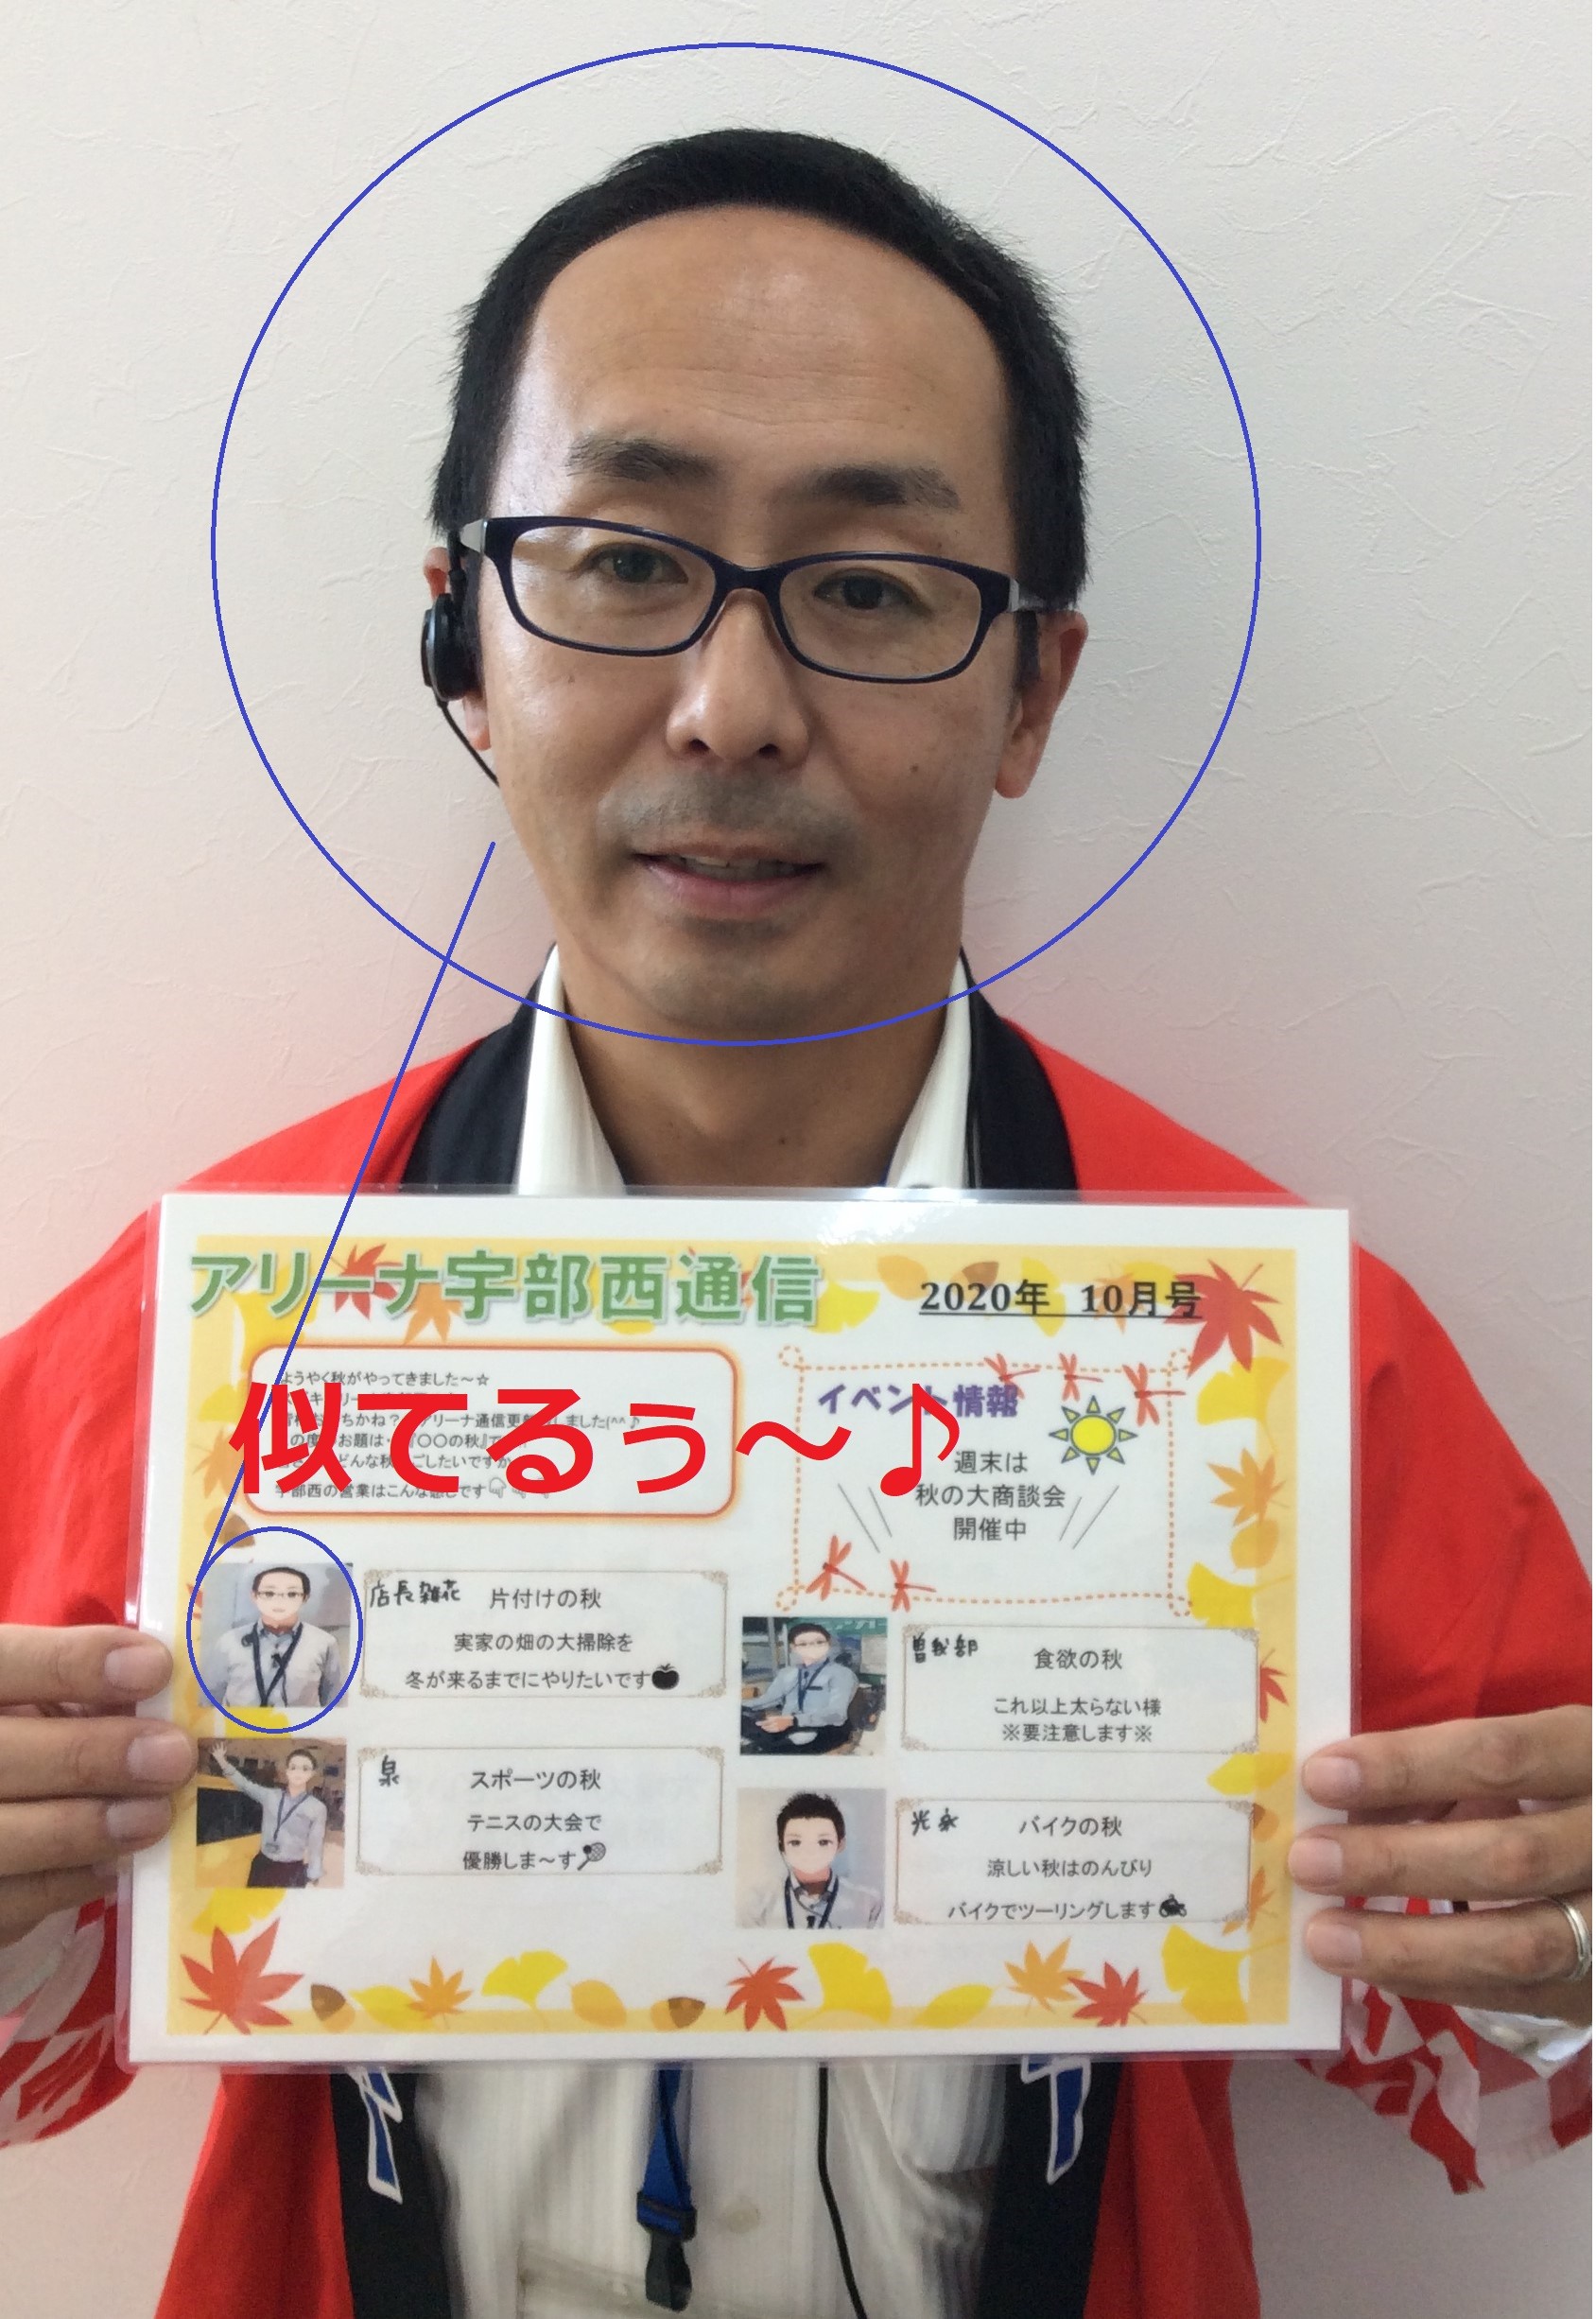 アリーナ宇部西通信
2020年 10月号
ようやく秋がやってきました～☆
似てるぅ～♪
宇部西の営業はこんな感じです
イベント情報
週末は
秋の大商談会
開催中
店長雑花 片付けの秋
実家の畑の大掃除を
冬が来るまでにやりたいです
曽我部 食欲の秋
これ以上太らない様
※要注意します※
泉 スポーツの秋
テニスの大会で
優勝しま～す
光永 バイクの秋
涼しい秋はのんびり
バイクでツーリングします